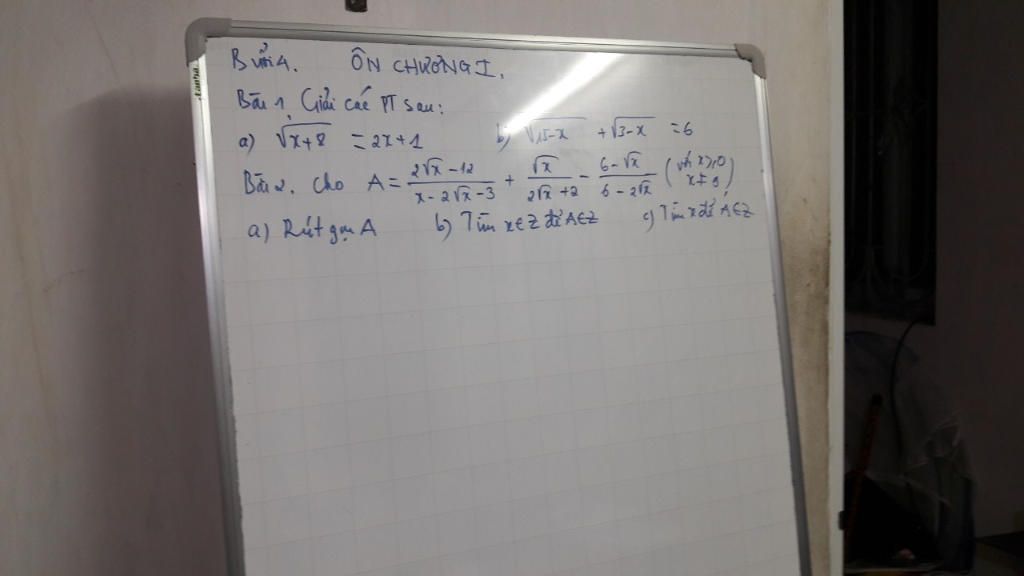 Buổi 4. ÔN CHƯƠNG I.
Bài 1. Giải các PT sau:
a) √(x+8) = 2x+1 b) √(15-x) + √(3-x) = 6
Bài 2. Cho A = (2√x - 12)/(x - 2√x - 3) + √x/(2√x + 2) - (6 - √x)/(6 - 2√x) (với x≥0 x≠9)
a) Rút gọn A b) Tìm x∈Z để A∈Z c) Tìm x để A∈Z